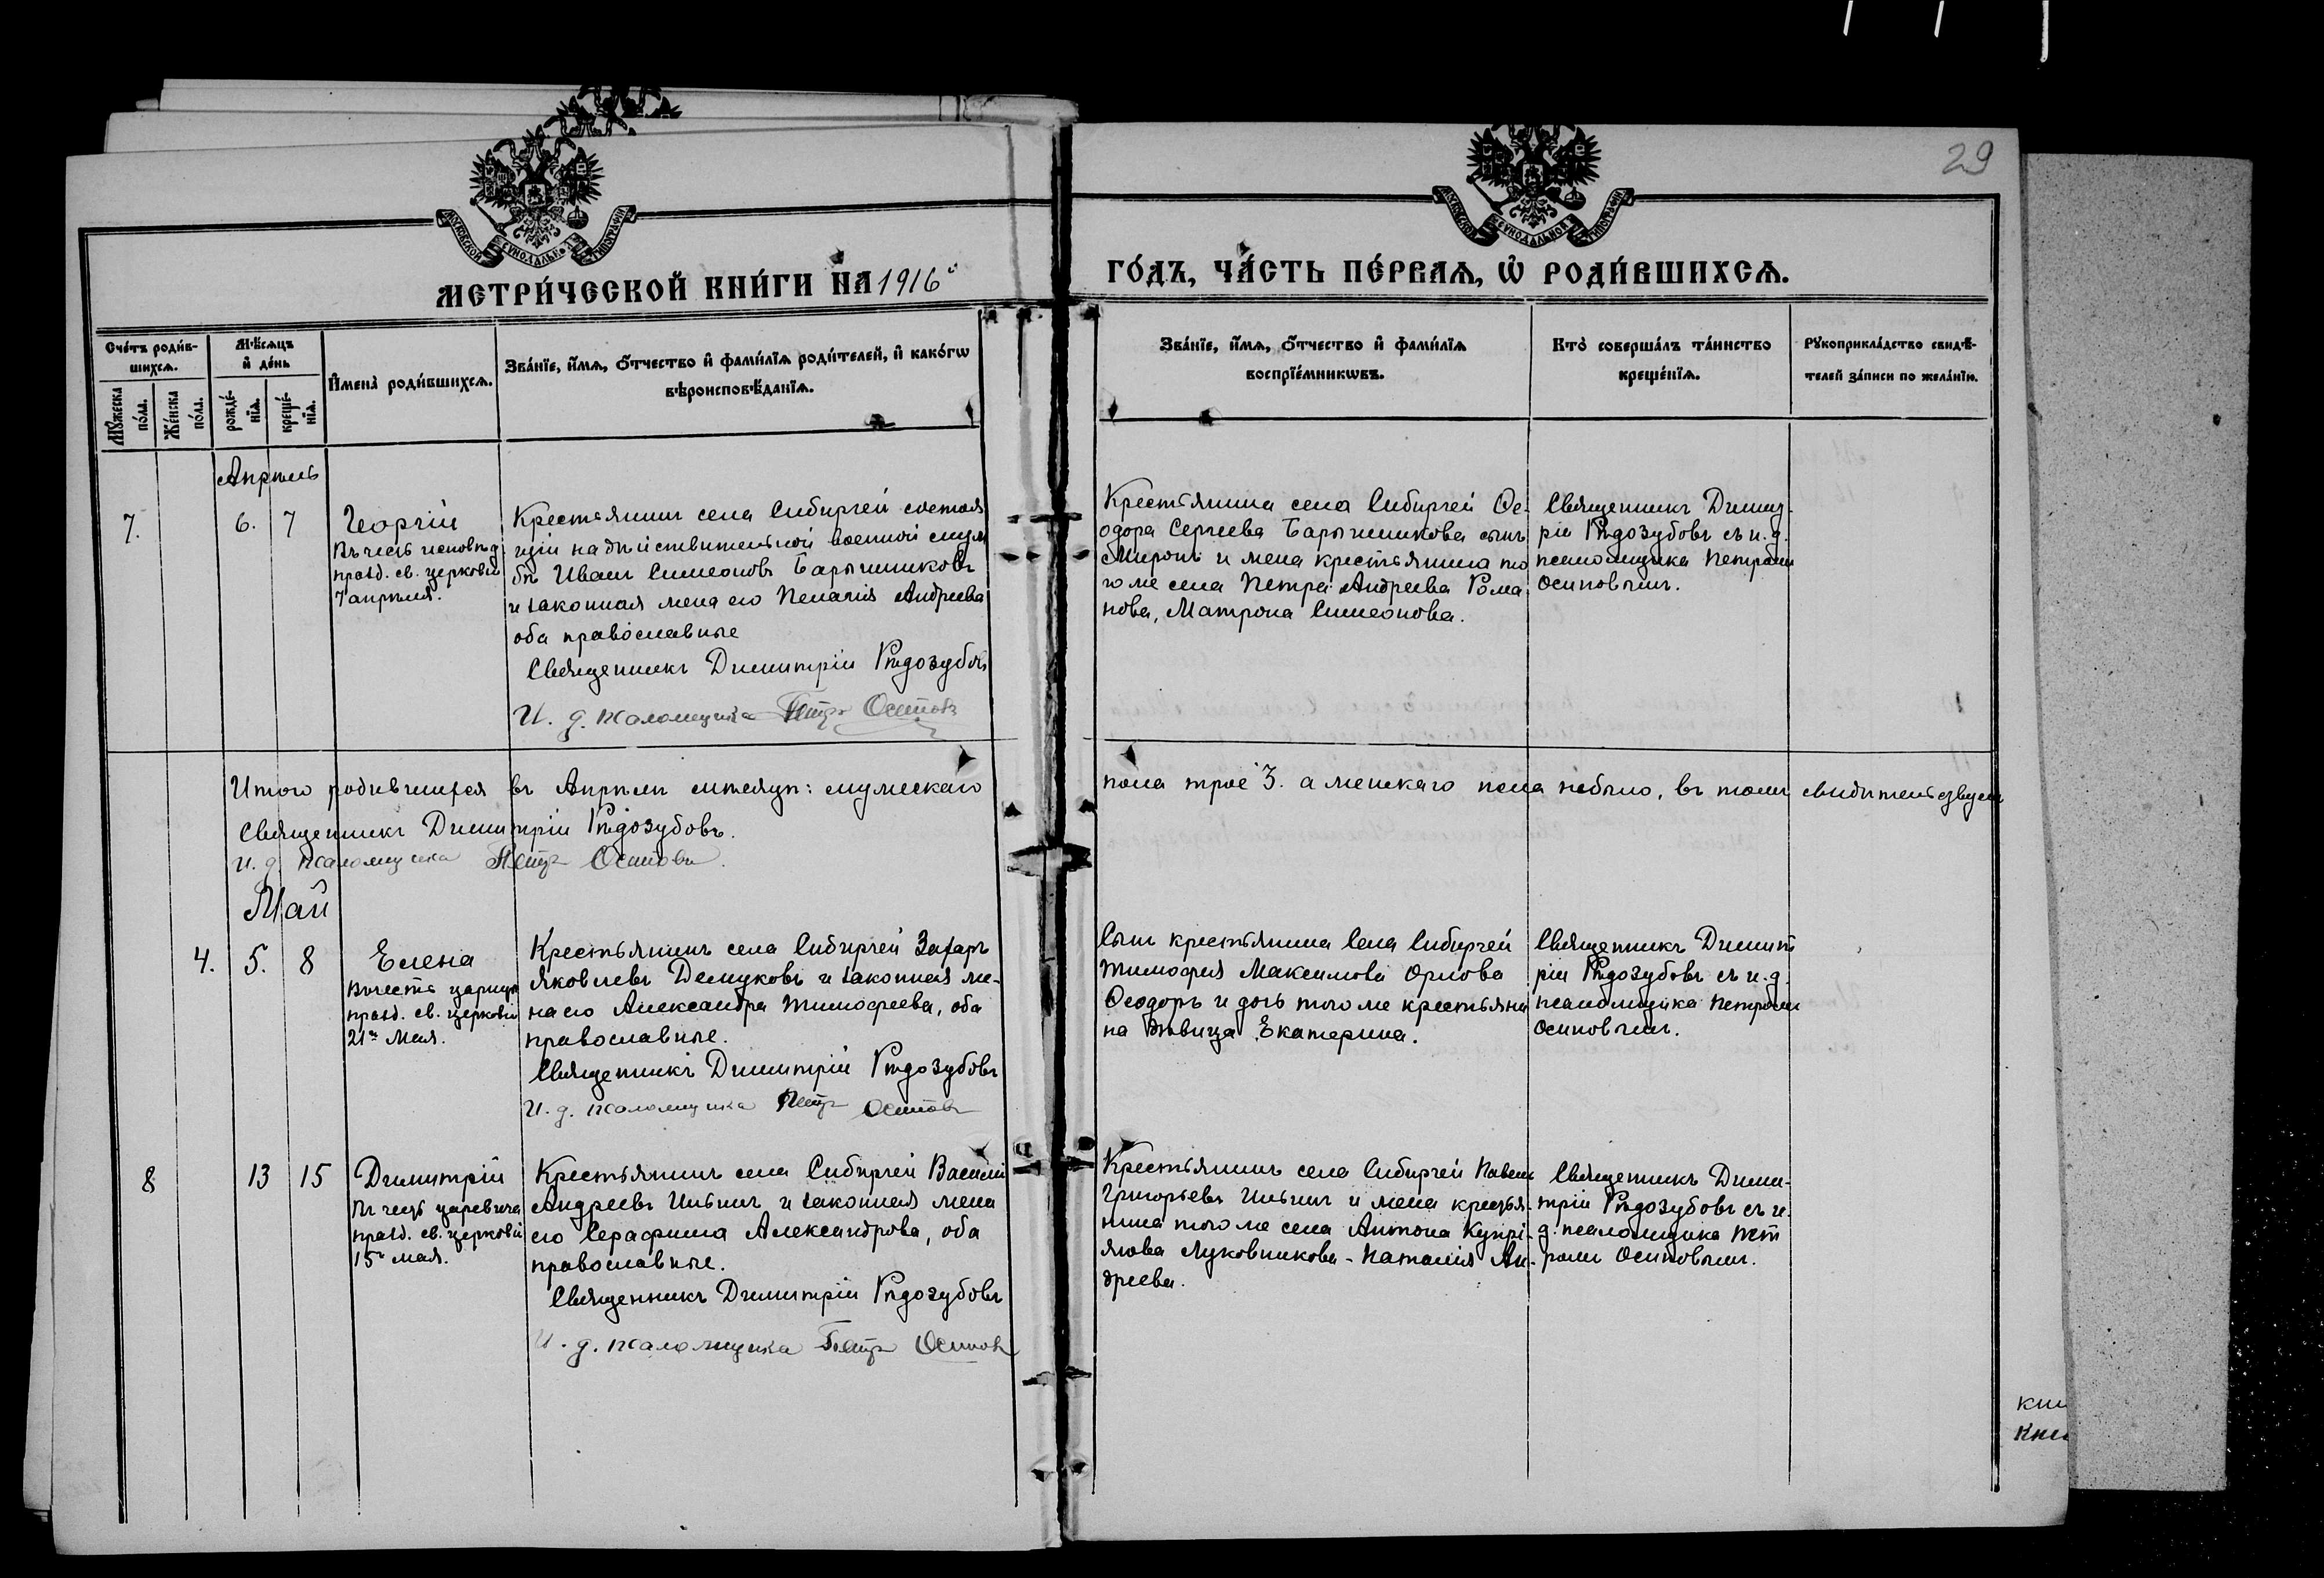 29
МОСКОВСКОЙ СУНОДАЛЬНОЙ ТИПОГРАФІИ
МОСКОВСКОЙ СУНОДАЛЬНОЙ ТИПОГРАФІИ
МЕТРИ́ЧЕСКОЙ КНИ́ГИ НА 1916й
ГО́ДЪ, ЧА́СТЬ ПЕ́РВАѦ, Ѡ҆ РОДИ́ВШИХСѦ.
Сче́тъ роди́в-
шихсѧ.
Мꙋ́жеска по́ла.
Же́нска по́ла.
Мѣ́сѧцъ
и҆ де́нь
рожде́-
нїѧ.
креще́-
нїѧ.
И҆мена̀ роди́вшихсѧ.
Зва́нїе, и҆́мѧ, ѻ҆́тчество и҆ фами́лїѧ роди́телей, и҆ како́гѡ
вѣроисповѣ́данїѧ.
Зва́нїе, и҆́мѧ, ѻ҆́тчество и҆ фами́лїѧ
воспрїе́мникѡвъ.
Кто̀ соверша́лъ та́инство
креще́нїѧ.
Рꙋкоприкла́дство свидѣ́-
телей за́писи по жела́нїю.
Апрѣль
7.
6.
7
Георгій
Въ честь исповѣд.
празд. св. церковію
7 апрѣля.
Крестьянинъ села Сибиргей состоя
щій на дѣйствительной военной служ
бѣ Иванъ Симеоновъ Барышниковъ
и законная жена его Пелагія Андреева
оба православные
Священникъ Димитрій Рѣдозубовъ
И. д. псаломщика Петръ Осиповъ
Крестьянина села Сибиргей Ѳе-
одора Сергеева Барышникова сынъ
Миронъ и жена крестьянина то
го же села Петра Андреева Рома
нова, Матрона Симеонова.
Священникъ Димит-
рій Рѣдозубовъ съ и. д.
псаломщика Петромъ
Осиповымъ.
Итого родившихся въ Апрѣлѣ мѣсяцѣ: мужескаго
пола трое 3. а женскаго пола небыло, въ томъ свидѣтельствуемъ
Священникъ Димитрій Рѣдозубовъ.
и. д. псаломщика Петръ Осиповъ.
Май
4.
5.
8
Елена
Въ честь царицы
празд. св. церковію
21го Мая.
Крестьянинъ села Сибиргей Захаръ
Яковлевъ Демуковъ и законная же-
на его Александра Тимофеева, оба
православные.
Священникъ Димитрій Рѣдозубовъ
И. д. псаломщика Петръ Осиповъ
Сынъ крестьянина села Сибиргей
Тимофея Максимова Орлова
Ѳеодоръ и дочь того же крестьяни
на дѣвица Екатерина.
Священникъ Димит
рій Рѣдозубовъ съ и. д.
псаломщика Петромъ
Осиповымъ.
8
13
15
Димитрій
Въ честь царевича
празд. св. церковію
15го мая.
Крестьянинъ села Сибиргей Василій
Андреевъ Ильинъ и законная жена
его Серафима Александрова, оба
православные.
Священникъ Димитрій Рѣдозубовъ
И. д. псаломщика Петръ Осиповъ
Крестьянинъ села Сибиргей Павелъ
Григорьевъ Ильинъ и жена крестья-
нина того же села Антона Купрі-
янова Луковникова - Наталія Ан-
дреева.
Священникъ Дими-
трій Рѣдозубовъ съ и.
д. псаломщика Пет
ромъ Осиповымъ.